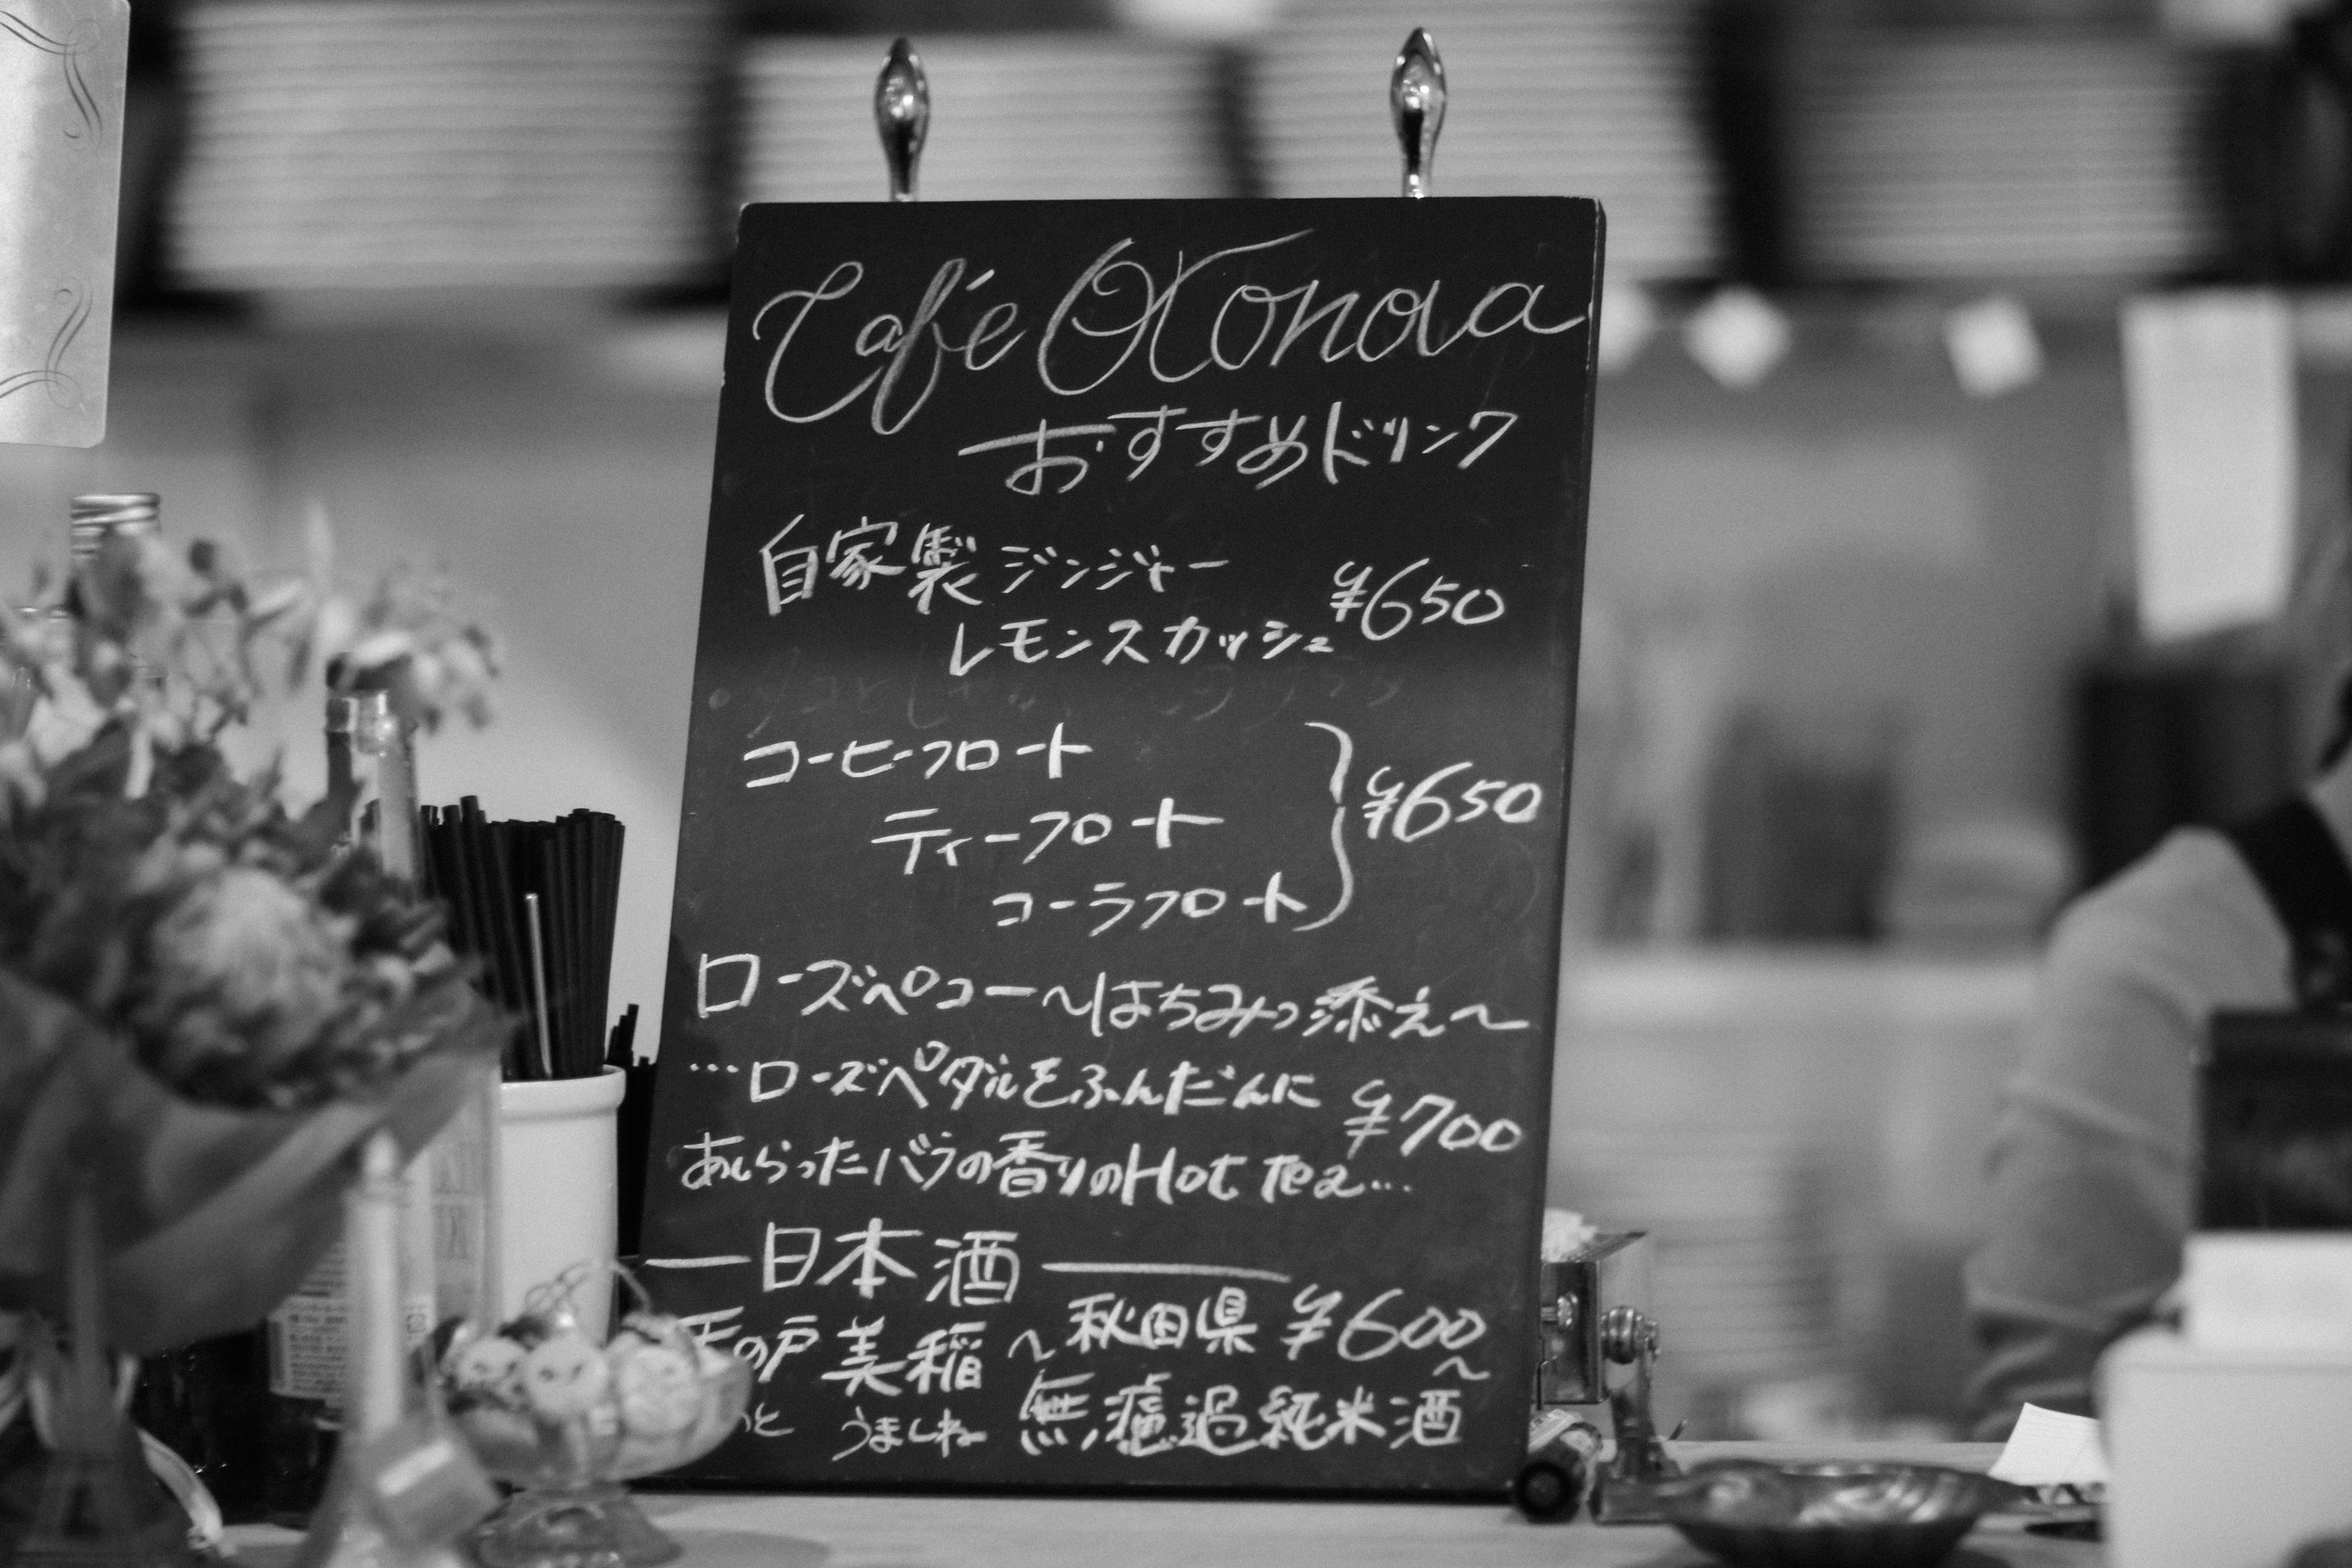 Café Otonova
おすすめドリンク
自家製ジンジャー
レモンスカッシュ ¥650
コーヒーフロート
ティーフロート
コーラフロート
¥650
ローズペコー〜はちみつ添え〜
…ローズペタルをふんだんに
¥700
あしらったバラの香りのHot Tea…
日本酒
天の戸 美稲 〜秋田県 ¥600
と うましね 無濾過純米酒〜